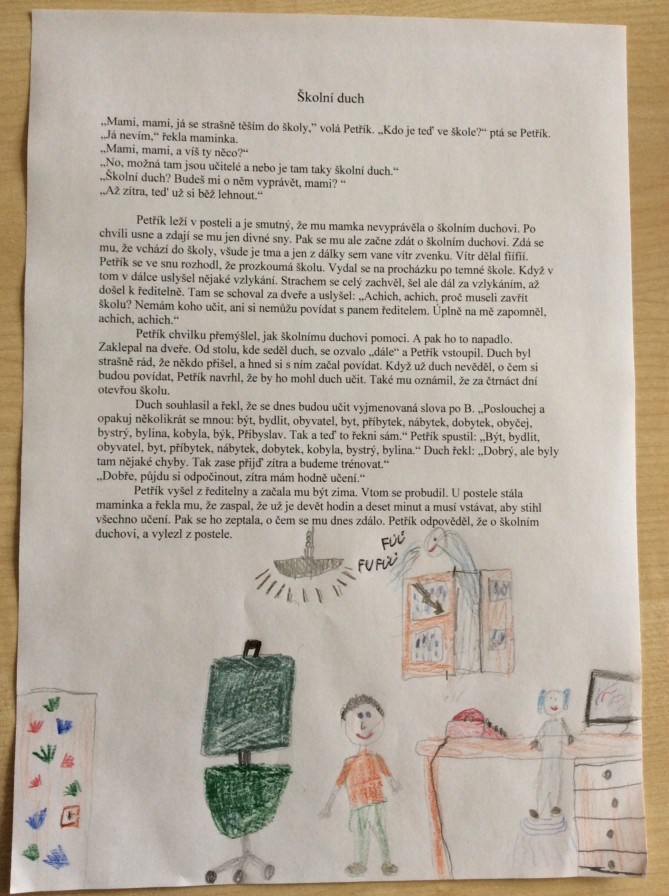 Školní duch
„Mami, mami, já se strašně těším do školy,” volá Petřík. „Kdo je teď ve škole?“ ptá se Petřík.
„Já nevím,“ řekla maminka.
„Mami, mami, a víš ty něco?“
„No, možná tam jsou učitelé a nebo je tam taky školní duch.“
„Školní duch? Budeš mi o něm vyprávět, mami? “
„Až zítra, teď už si běž lehnout.“
Petřík leží v posteli a je smutný, že mu mamka nevyprávěla o školním duchovi. Po
chvíli usne a zdají se mu jen divné sny. Pak se mu ale začne zdát o školním duchovi. Zdá se
mu, že vchází do školy, všude je tma a jen z dálky sem vane vítr zvenku. Vítr dělal fííííí.
Petřík se ve snu rozhodl, že prozkoumá školu. Vydal se na procházku po temné škole. Když v
tom v dálce uslyšel nějaké vzlykání. Strachem se celý zachvěl, šel ale dál za vzlykáním, až
došel k ředitelně. Tam se schoval za dveře a uslyšel: „Achich, achich, proč museli zavřít
školu? Nemám koho učit, ani si nemůžu povídat s panem ředitelem. Úplně na mě zapomněl,
achich, achich.“
Petřík chvilku přemýšlel, jak školnímu duchovi pomoci. A pak ho to napadlo.
Zaklepal na dveře. Od stolu, kde seděl duch, se ozvalo „dále“ a Petřík vstoupil. Duch byl
strašně rád, že někdo přišel, a hned si s ním začal povídat. Když už duch nevěděl, o čem si
budou povídat, Petřík navrhl, že by ho mohl duch učit. Také mu oznámil, že za čtrnáct dní
otevřou školu.
Duch souhlasil a řekl, že se dnes budou učit vyjmenovaná slova po B. „Poslouchej a
opakuj několikrát se mnou: být, bydlit, obyvatel, byt, příbytek, nábytek, dobytek, obyčej,
bystrý, bylina, kobyla, býk, Přibyslav. Tak a teď to řekni sám.“ Petřík spustil: „Být, bydlit,
obyvatel, byt, příbytek, nábytek, dobytek, kobyla, bystrý, bylina.“ Duch řekl: „Dobrý, ale byly
tam nějaké chyby. Tak zase přijď zítra a budeme trénovat.“
„Dobře, půjdu si odpočinout, zítra mám hodně učení.“
Petřík vyšel z ředitelny a začala mu být zima. Vtom se probudil. U postele stála
maminka a řekla mu, že zaspal, že už je devět hodin a deset minut a musí vstávat, aby stihl
všechno učení. Pak se ho zeptala, o čem se mu dnes zdálo. Petřík odpověděl, že o školním
duchovi, a vylezl z postele.
FÚÚ
FUFÚÚ